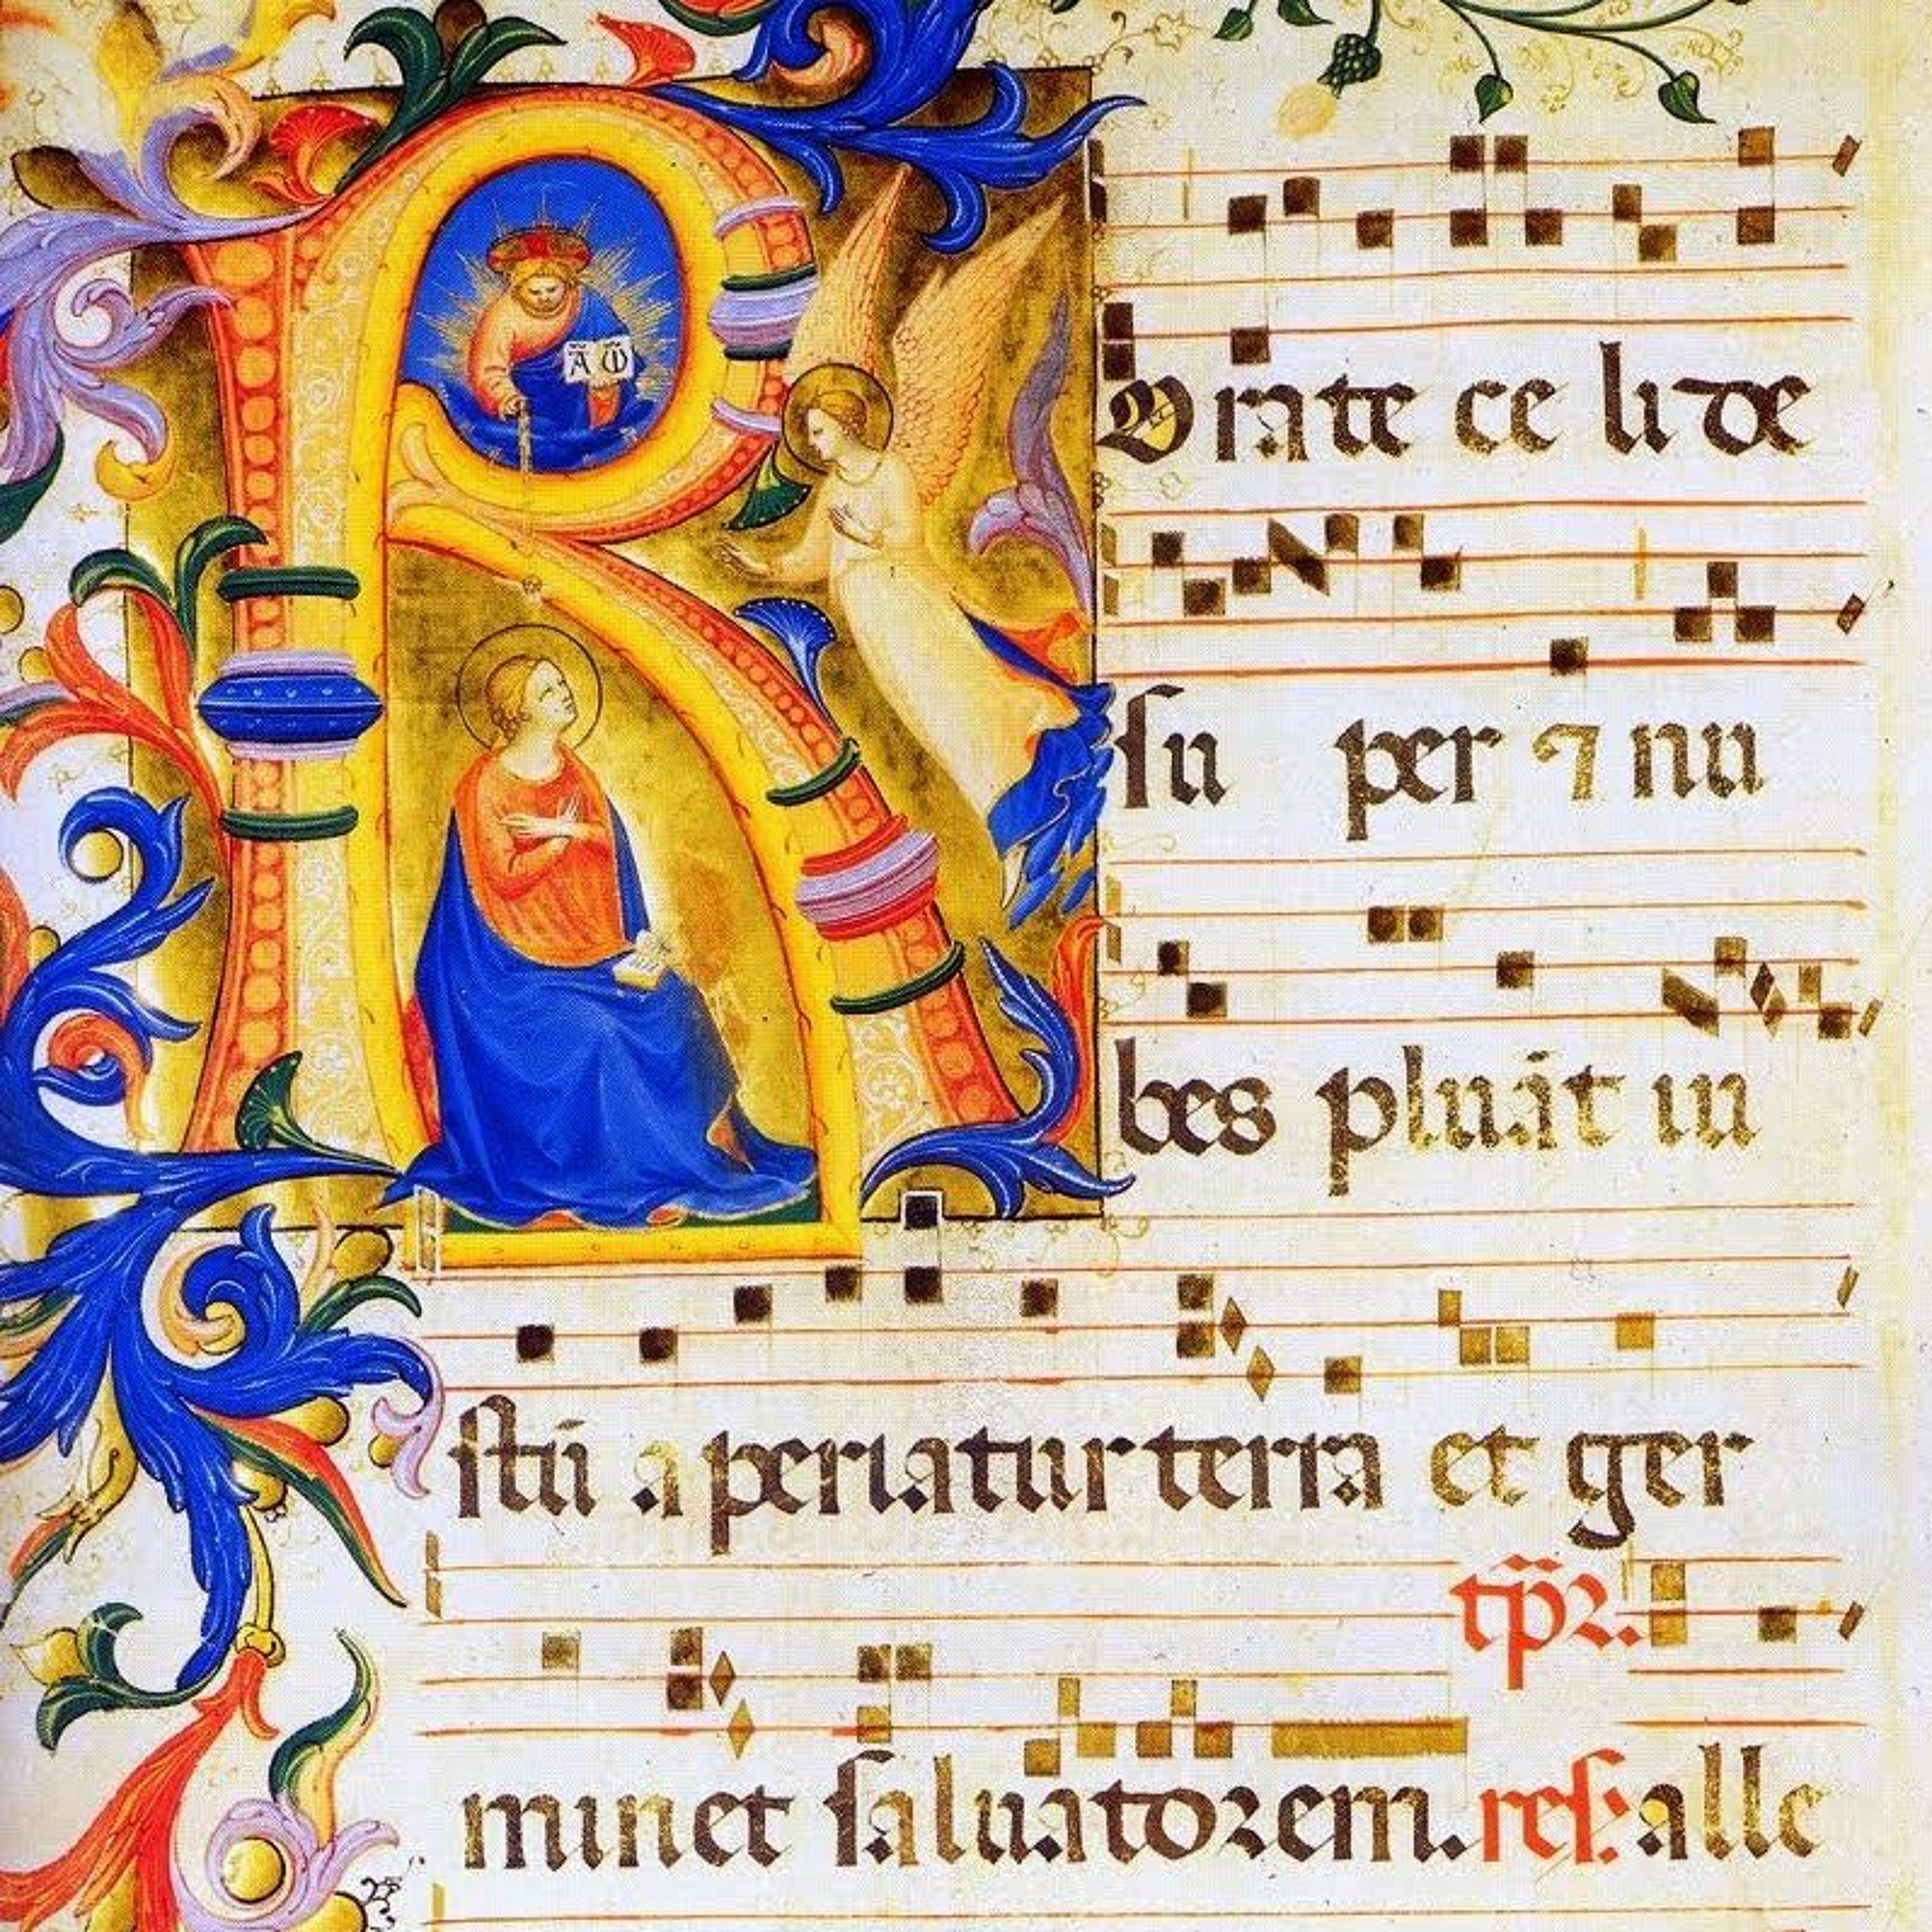 R
A Ω
Orate ce li de
su per ⁊ nu
bes pluāt iu
stū a periatur terra et ger
tp̄r.
minet saluatorem. res: alle